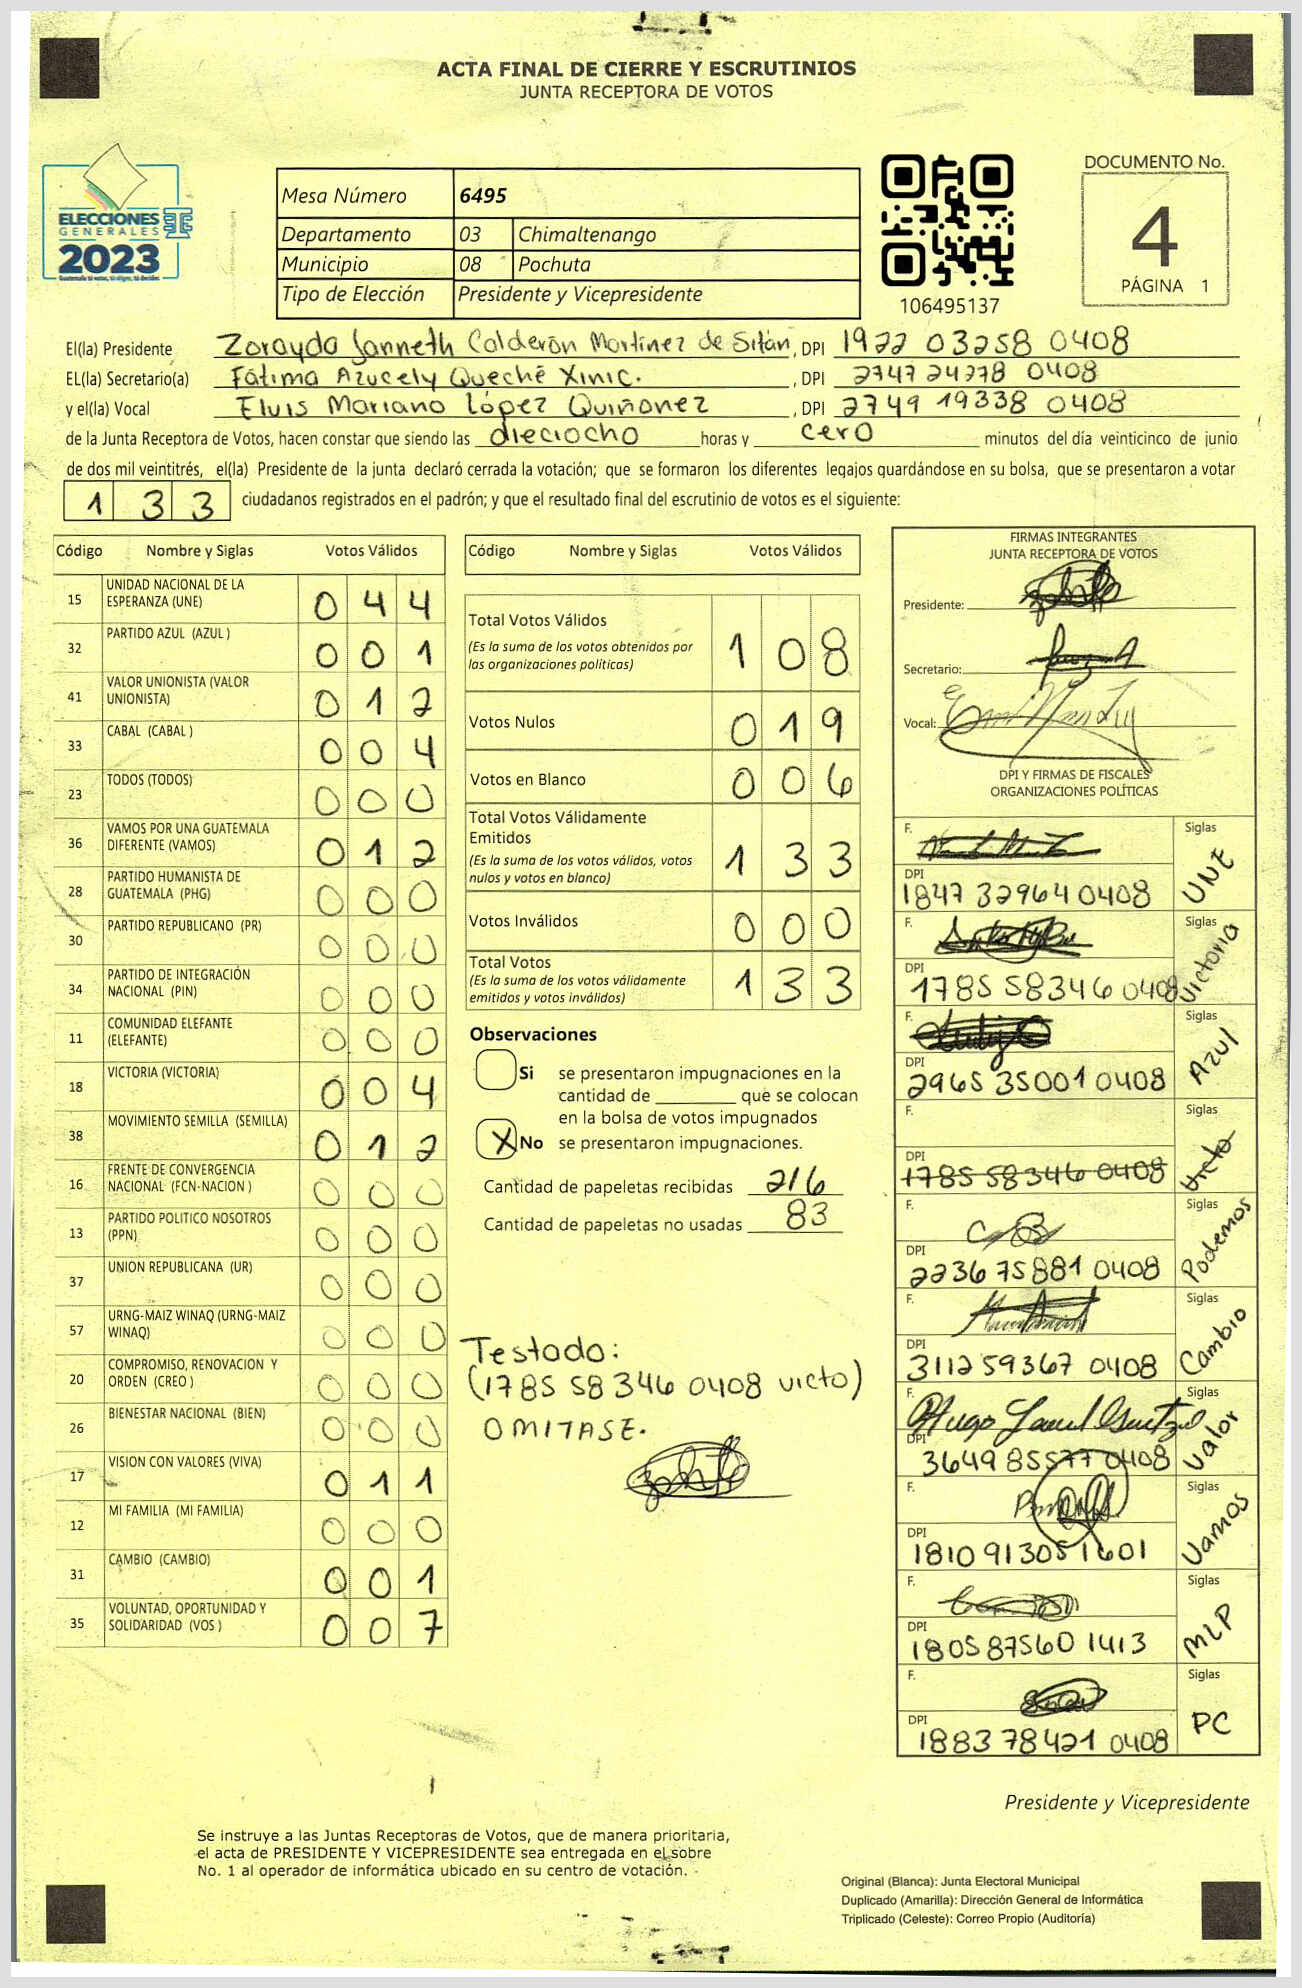 ACTA FINAL DE CIERRE Y ESCRUTINIOS
JUNTA RECEPTORA DE VOTOS
ELECCIONES
GENERALES
2023
Mesa Número 6495
Departamento 03 Chimaltenango
Municipio 08 Pochuta
Tipo de Elección Presidente y Vicepresidente
106495137
DOCUMENTO No.
4
PÁGINA 1
El(la) Presidente Zorayda Janneth Calderón Martínez de Sitán, DPI 1922 03258 0408
EL(la) Secretario(a) Fátima Azucely Queché Xinic. , DPI 2747 24278 0408
y el(la) Vocal Elvis Mariano López Quiñonez , DPI 2749 19338 0408
de la Junta Receptora de Votos, hacen constar que siendo las dieciocho horas y cero minutos del día veinticinco de junio
de dos mil veintitrés, el(la) Presidente de la junta declaró cerrada la votación; que se formaron los diferentes legajos guardándose en su bolsa, que se presentaron a votar
133 ciudadanos registrados en el padrón; y que el resultado final del escrutinio de votos es el siguiente:
Código Nombre y Siglas Votos Válidos
15 UNIDAD NACIONAL DE LA ESPERANZA (UNE) 044
32 PARTIDO AZUL (AZUL ) 001
41 VALOR UNIONISTA (VALOR UNIONISTA) 012
33 CABAL (CABAL ) 004
23 TODOS (TODOS) 000
36 VAMOS POR UNA GUATEMALA DIFERENTE (VAMOS) 012
28 PARTIDO HUMANISTA DE GUATEMALA (PHG) 000
30 PARTIDO REPUBLICANO (PR) 000
34 PARTIDO DE INTEGRACIÓN NACIONAL (PIN) 000
11 COMUNIDAD ELEFANTE (ELEFANTE) 000
18 VICTORIA (VICTORIA) 004
38 MOVIMIENTO SEMILLA (SEMILLA) 012
16 FRENTE DE CONVERGENCIA NACIONAL (FCN-NACION ) 000
13 PARTIDO POLITICO NOSOTROS (PPN) 000
37 UNION REPUBLICANA (UR) 000
57 URNG-MAIZ WINAQ (URNG-MAIZ WINAQ) 000
20 COMPROMISO, RENOVACION Y ORDEN (CREO ) 000
26 BIENESTAR NACIONAL (BIEN) 000
17 VISION CON VALORES (VIVA) 011
12 MI FAMILIA (MI FAMILIA) 000
31 CAMBIO (CAMBIO) 001
35 VOLUNTAD, OPORTUNIDAD Y SOLIDARIDAD (VOS ) 007
Código Nombre y Siglas Votos Válidos
Total Votos Válidos 108
(Es la suma de los votos obtenidos por
las organizaciones políticas)
Votos Nulos 019
Votos en Blanco 006
Total Votos Válidamente
Emitidos 133
(Es la suma de los votos válidos, votos
nulos y votos en blanco)
Votos Inválidos 000
Total Votos 133
(Es la suma de los votos válidamente
emitidos y votos inválidos)
Observaciones
Si se presentaron impugnaciones en la
cantidad de ________ que se colocan
en la bolsa de votos impugnados
X No se presentaron impugnaciones.
Cantidad de papeletas recibidas 216
Cantidad de papeletas no usadas 83
Testado:
(1785 58346 0408 victo)
OMITASE.
FIRMAS INTEGRANTES
JUNTA RECEPTORA DE VOTOS
Presidente:
Secretario:
Vocal:
DPI Y FIRMAS DE FISCALES
ORGANIZACIONES POLÍTICAS
F. Siglas
DPI 1847 32964 0408 UNE
F. Siglas
DPI 1785 58346 0408 Victoria
F. Siglas
DPI 2965 35001 0408 Azul
F. Siglas
DPI 1785 58346 0408 Victo
F. Siglas
DPI 2236 75881 0408 Podemos
F. Siglas
DPI 3112 59367 0408 Cambio
F. Hugo Siglas
DPI 3649 85577 0408 Valor
F. Siglas
DPI 1810 91305 1601 Vamos
F. Siglas
DPI 1805 87560 1413 MLP
F. Siglas
DPI 1883 78421 0408 PC
Presidente y Vicepresidente
Se instruye a las Juntas Receptoras de Votos, que de manera prioritaria,
el acta de PRESIDENTE Y VICEPRESIDENTE sea entregada en el sobre
No. 1 al operador de informática ubicado en su centro de votación.
Original (Blanca): Junta Electoral Municipal
Duplicado (Amarilla): Dirección General de Informática
Triplicado (Celeste): Correo Propio (Auditoría)